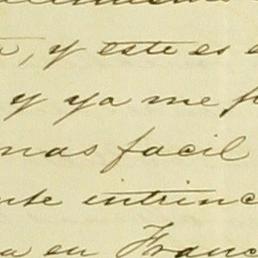 , y este es
y ya me
mas facil
intrinc
en Franc